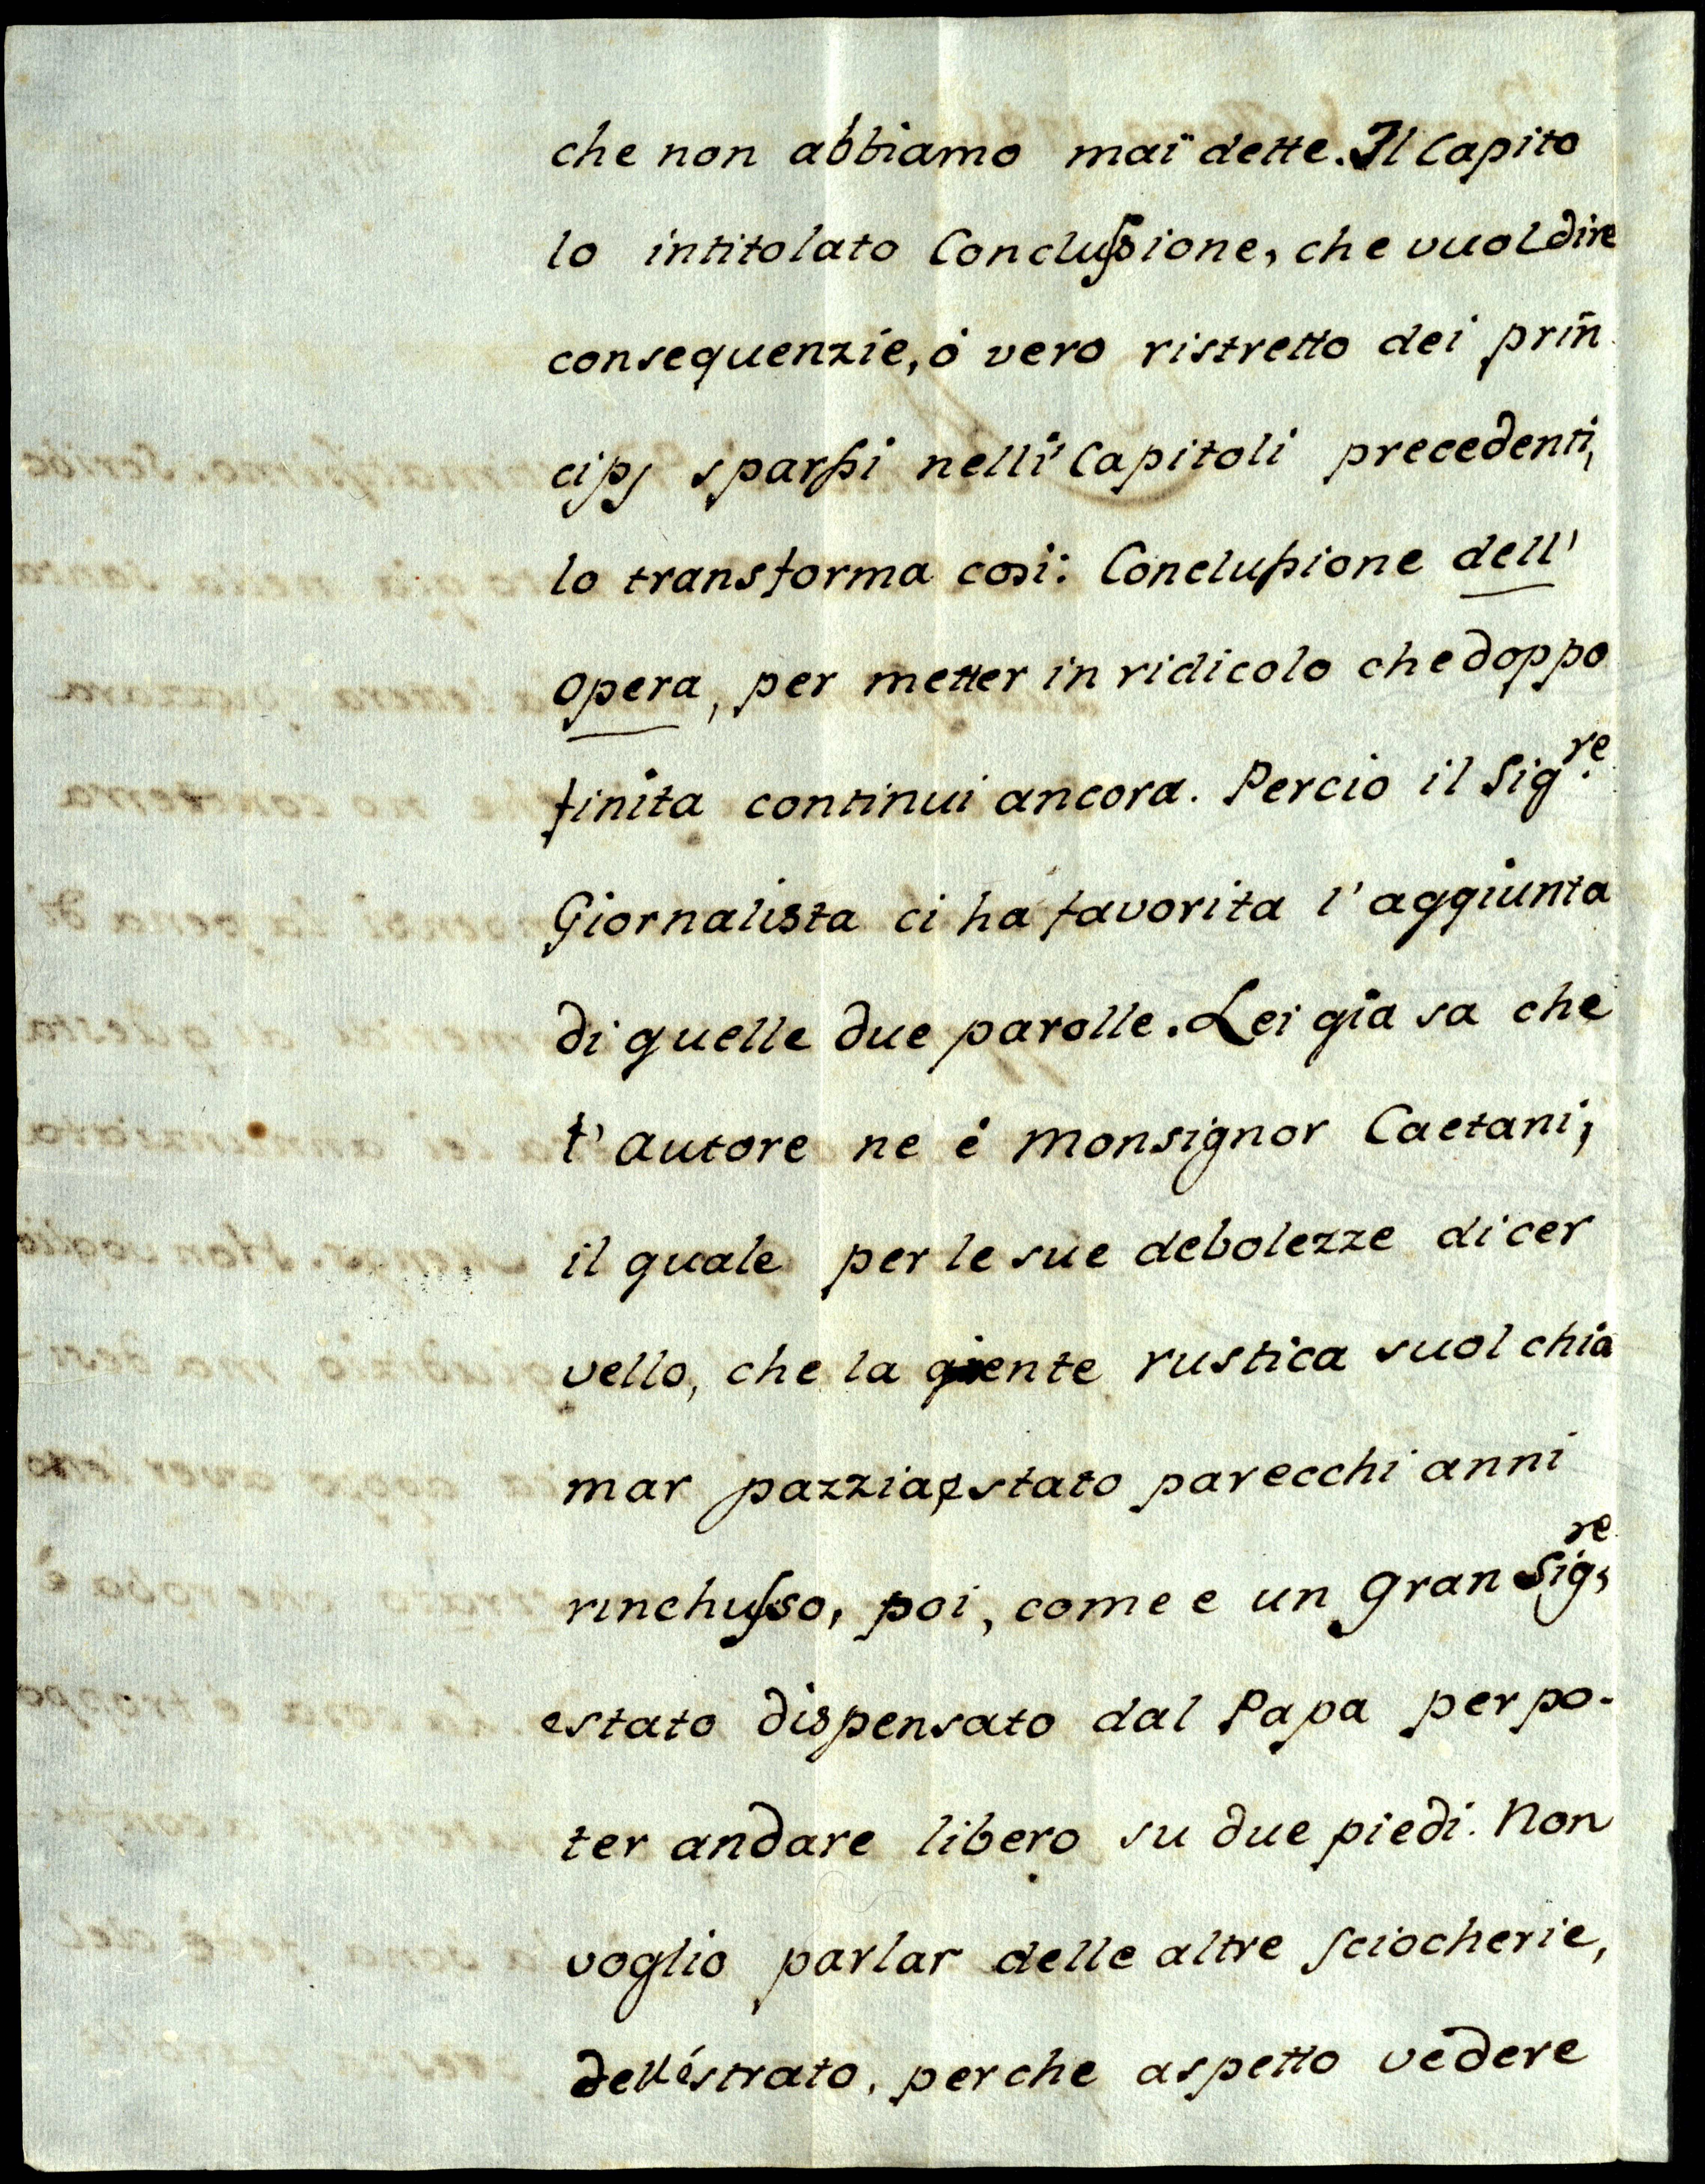 che non abbiamo maï dette. Il Capito
lo intitolato Conclussione, che vuol dire
consequenzie, ò vero ristretto dei prin
cipj sparssi nelli Capitoli precedenti,
lo transforma così: Conclussione dell'
opera, per metter in ridicolo che doppo
finita continui ancora. Percio il Sig.re
Giornalista ci ha favorita l'aggiunta
di quelle due parolle. Lei gia sa che
l'autore ne é Monsignor Caetani,
il quale per le sue debolezze di cer
vello, che la gente rustica suol chia
mar pazzia, e stato parecchi anni
rinchusso, poi, come e un gran Sig.re
estato dispensato dal Papa per po-
ter andare libero su due piedi. Non
voglio parlar delle altre sciocherie,
dell'éstrato, perche aspetto vedere